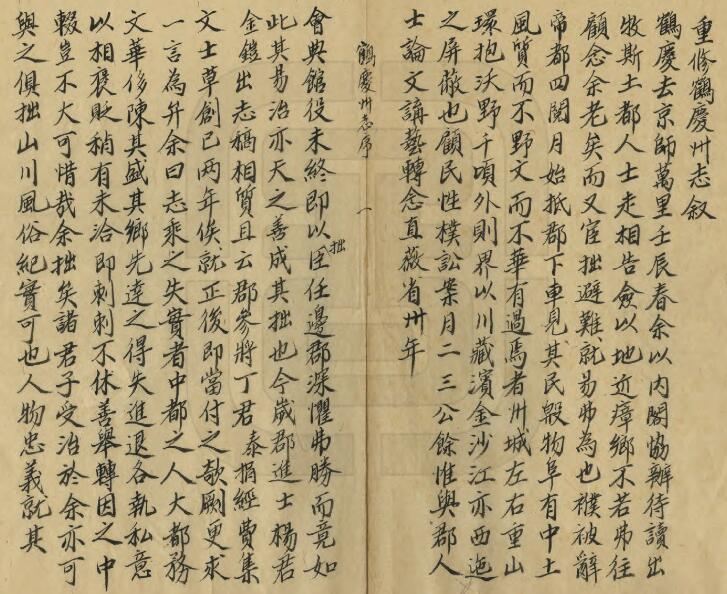 重修鶴慶州志叙
鶴慶去京師萬里壬辰春余以内閣協辦待讀出
牧斯土都人士走相告僉以地近瘴鄉不若弗往
顧念余老矣而又宦拙避難就易弗為也襆被辭
帝都四閱月始抵郡下車見其民殷物阜有中土
風質而不野文而不華有過焉者州城左右重山
環抱沃野千頃外則界以川藏濱金沙江亦西迤
之屏蔽也顧民性樸訟案月二三公餘惟與郡人
士論文講藝轉念直薇省卅年
鶴慶州志序
一
會典館役未終即以拙臣任邊郡深懼弗勝而竟如
此其易治亦天之善成其拙也今歲郡進士楊君
金鎧出志稿相質且云郡參將丁君泰捐經費集
文士草創已两年俟就正後即當付之欹劂更求
一言為弁余曰志乘之失實者中都之人大都務
文華侈陳其盛其鄉先達之得失進退各執私意
以相褒貶稍有未洽即刺刺不休善舉轉因之中
輟豈不大可惜哉余拙矣諸君子受治於余亦可
與之俱拙山川風俗紀實可也人物忠義就其